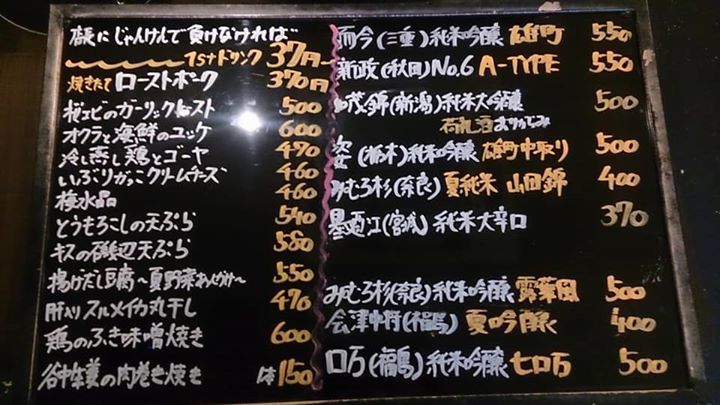 店長にじゃんけんで負けなければ
1stドリンク 37円
焼きたてローストポーク 370円
桜エビのガーリックトースト 500
オクラと海鮮のユッケ 600
冷し蒸し鶏とゴーヤ 470
いぶりがっこクリームチーズ 460
椿水晶 460
とうもろこしの天ぷら 540
キスの磯辺天ぷら 580
揚げだし豆腐〜夏野菜あんかけ〜 550
肝入りスルメイカ丸干し 470
鶏のふき味噌焼き 600
谷中生姜の肉巻き焼き 1本 150
而今(三重)純米吟醸 雄町 550
新政(秋田)No.6 A-TYPE 550
加茂錦(新潟)純米大吟醸 500
荷札酒
姿(栃木)純米吟醸 雄町中取り 500
みむろ杉(奈良)夏純米 山田錦 400
墨廼江(宮城)純米大辛口 370
みむろ杉(奈良)純米吟醸 露葉風 500
会津中将(福島)夏吟醸 400
ロ万(福島)純米吟醸 七ロ万 500